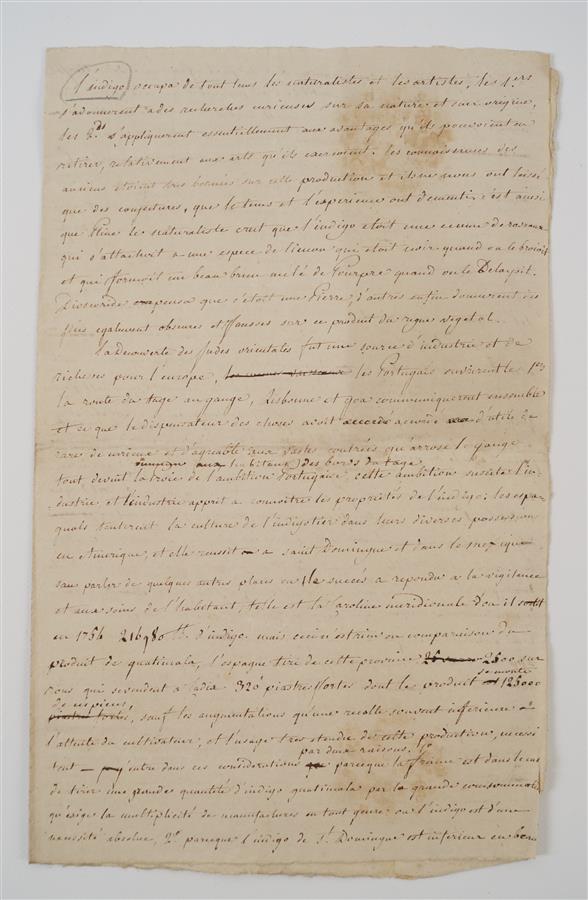 L'indigo occupa de tout tems les naturalistes et les artistes, les 1.ers
s'adonnerent a des recherches curieuses sur sa nature et son origine,
les 2.ds s'appliquerent essentiellement aux avantages qu'ils pouvoient en
retirer, relativement aux arts qu'ils exercoient. les connoissances des
anciens étoient très bornées sur cette production et ils ne nous ont laissé
que des conjectures, que le tems et l'experience ont dementi. c'est ainsi
que Pline le naturaliste crut que l'indigo etoit une ecume de roseaux
qui s'attachoit a une espece de limon qui etoit noir quand on le broioit
et qui formoit un beau brun melé de Pourpre quand on le Delayoit.
Dioscoride pensa que c'était une Pierre, d'autres enfin donnerent des
idées egalement obscures et fausses sur ce produit du regne vegetal.
La Decouverte des Indes orientales fut une source d'industrie et de
richesses pour l'europe, les Portugais ouvrirent les 1.ers
la route du tage au gange, Lisbonne et goa communiquerent ensemble
et ce que le dispensateur des choses avoit accordé d'utile de
rare de curieux et d'agreable aux vastes contrées qu'arrose le gange
aux habitans des bords du tage.
tout devint la proie de l'ambition Portugaise, cette ambition suscita l'in-
dustrie et l'industrie apprit a connoitre les propriétés de l'indigo; les espa-
gnols tenterent la culture de l'indigotier dans leurs diverses possessions
en Amerique, et elle reussit a saint Domingue et dans le mexique
sans parler de quelques autres places où le succés a repondu a la vigilance
et aux soins de l'habitant, telle est la Caroline meridionale d'où il sortit
en 1754 216980 tt d'indigo. mais ceci n'est rien en comparaison du
produit de guatimala, l'espagne tire de cette province 2500 sur
-rons qui se vendent a Cadix 320 piastres fortes dont le produit se monte 125000
de espèces
piastres fortes, sauf les augmentations qu'une recolte souvent inferieure a
l'attente du cultivateur, et l'usage tres etendu de cette production, necessi
tent — j'entre dans ces considerations par deux raisons. 1.o parceque la france est dans le cas
de tirer une grande quantité d'indigo guatimala par la grande consommation
qu'exige la multiplicité de manufactures en tout genre ou l'indigo est d'une
necessité absolue, 2.o parceque l'indigo de S.t Domingue est inferieur en beau